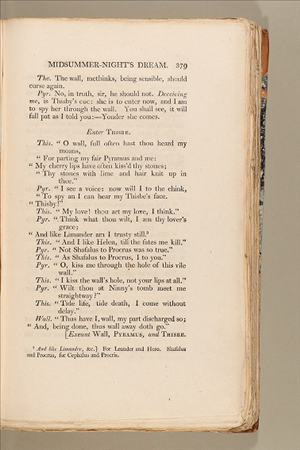 MIDSUMMER-NIGHT'S DREAM. 379
The. The wall, methinks, being sensible, should
curse again.
Pyr. No, in truth, sir, he should not. Deceiving
me, is Thisby's cue: she is to enter now, and I am
to spy her through the wall. You shall see, it will
fall pat as I told you:—Yonder she comes.
Enter THISBE.
This. "O wall, full often hast thou heard my
moans,
"For parting my fair Pyramus and me:
"My cherry lips have often kiss'd thy stones;
"Thy stones with lime and hair knit up in
thee."
Pyr. "I see a voice: now will I to the chink,
"To spy an I can hear my Thisbe's face.
"Thisby!"
This. "My love! thou art my love, I think."
Pyr. "Think what thou wilt, I am thy lover's
grace;
"And like Limander am I trusty still.⁹
This. "And I like Helen, till the fates me kill."
Pyr. "Not Shafalus to Procrus was so true."
This. "As Shafalus to Procrus, I to you."
Pyr. "O, kiss me through the hole of this vile
wall."
This. "I kiss the wall's hole, not your lips at all."
Pyr. "Wilt thou at Ninny's tomb meet me
straightway?"
This. "Tide life, tide death, I come without
delay."
Wall. "Thus have I, wall, my part discharged so;
"And, being done, thus wall away doth go."
[Exeunt Wall, PYRAMUS, and THISBE.
⁹ And like Limander, &c.] For Leander and Hero. Shafalus
and Procrus, for Cephalus and Procris.